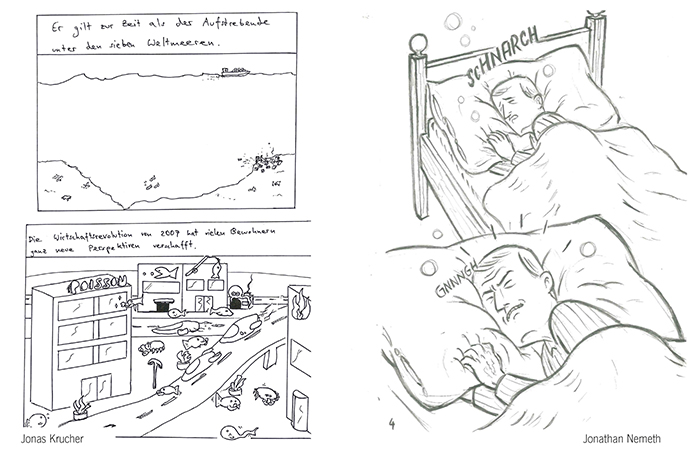 Er gilt zur Zeit als der Aufstrebende
unter den sieben Weltmeeren.
Die Wirtschaftsrevolution von 2007 hat vielen Bewohnern
ganz neue Perspektiven verschafft.
POISSON
Jonas Krucher
SCHNARCH
GNNNGH
4
Jonathan Nemeth